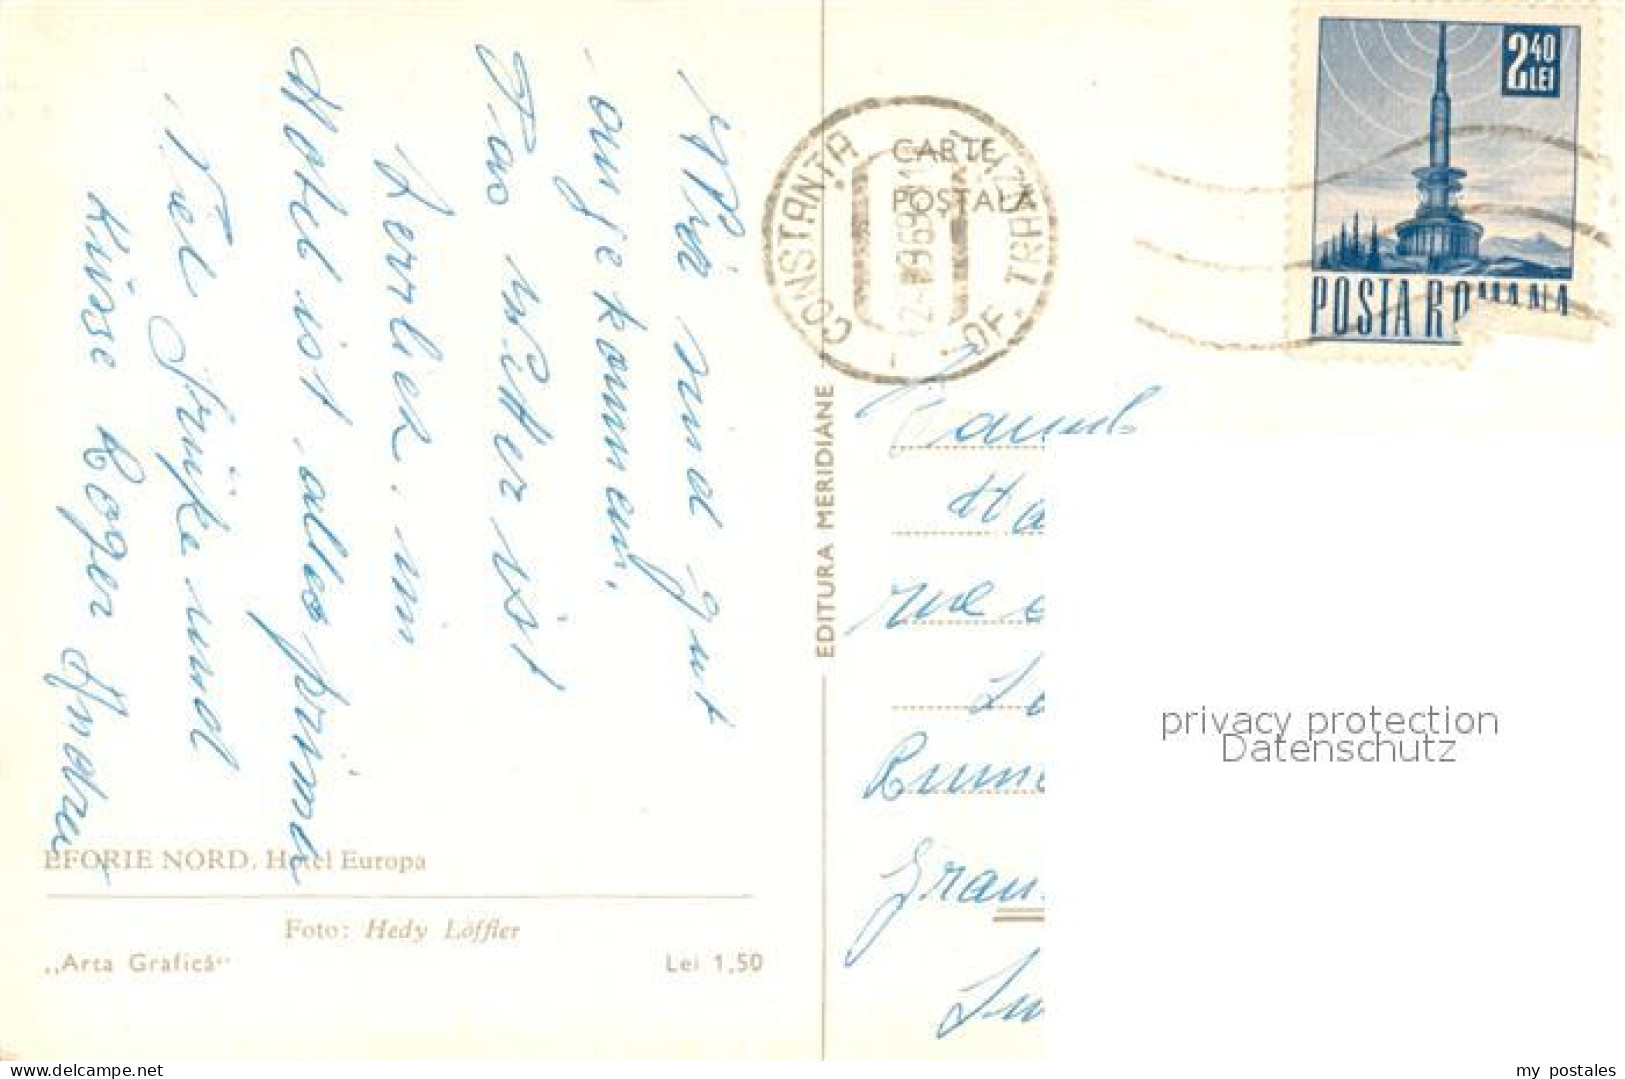 Wir sind gut
angekommen.
Das Wetter ist
herrlich, im
Hotel ist alles prima
Viel Grüße und
Küsse Roger Andrea
EFORIE NORD. Hotel Europa
Foto: Hedy Löffler
„Arta Grafică“
Lei 1,50
EDITURA MERIDIANE
CARTE
POȘTALĂ
CONSTANȚA
OF. TRANZIT
2 40
LEI
POSTA ROMANA
Ha
rue
Lu
privacy protection
Datenschutz
www.delcampe.net
my_postales